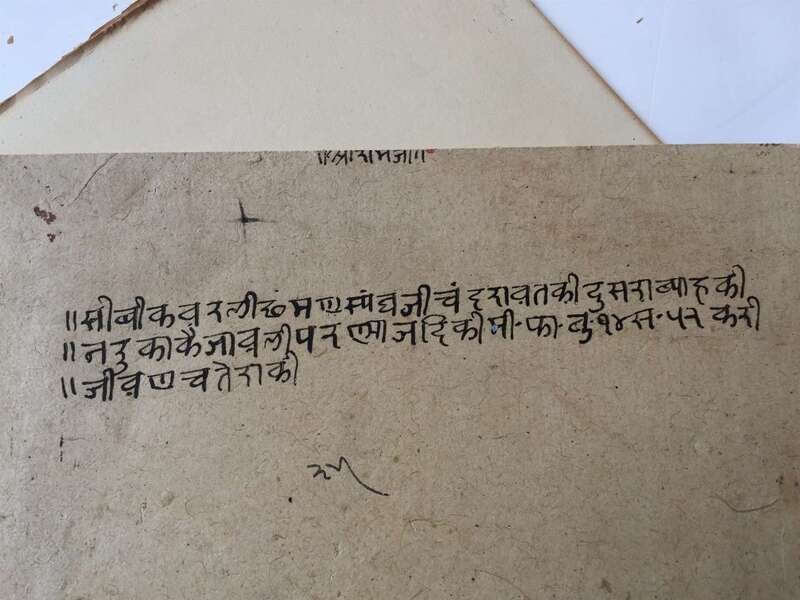 ॥श्रीरामजी॥
॥सीबी कवर लीछमण स्यंघजी चंदरावत की दुसरा ब्याह की
॥नरुका कै जावली परण्या जदि की मी॰ फा॰ बु॰ १४ स॰ ५२ करी
॥जीवण चतेरा की